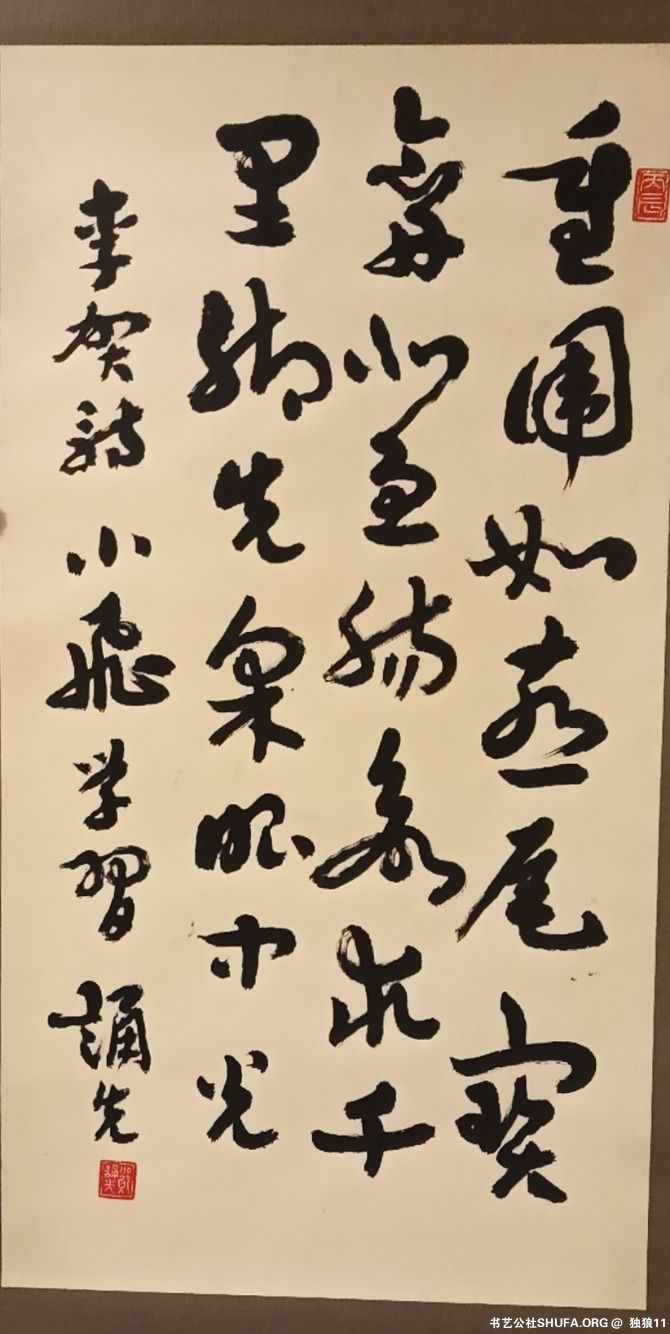 丙辰
重圍如燕尾寶
劍似魚腸欲求千
里腳先采眼中光
李賀詩 小飛学習 誦先
书艺公社SHUFA.ORG @ 独狼11